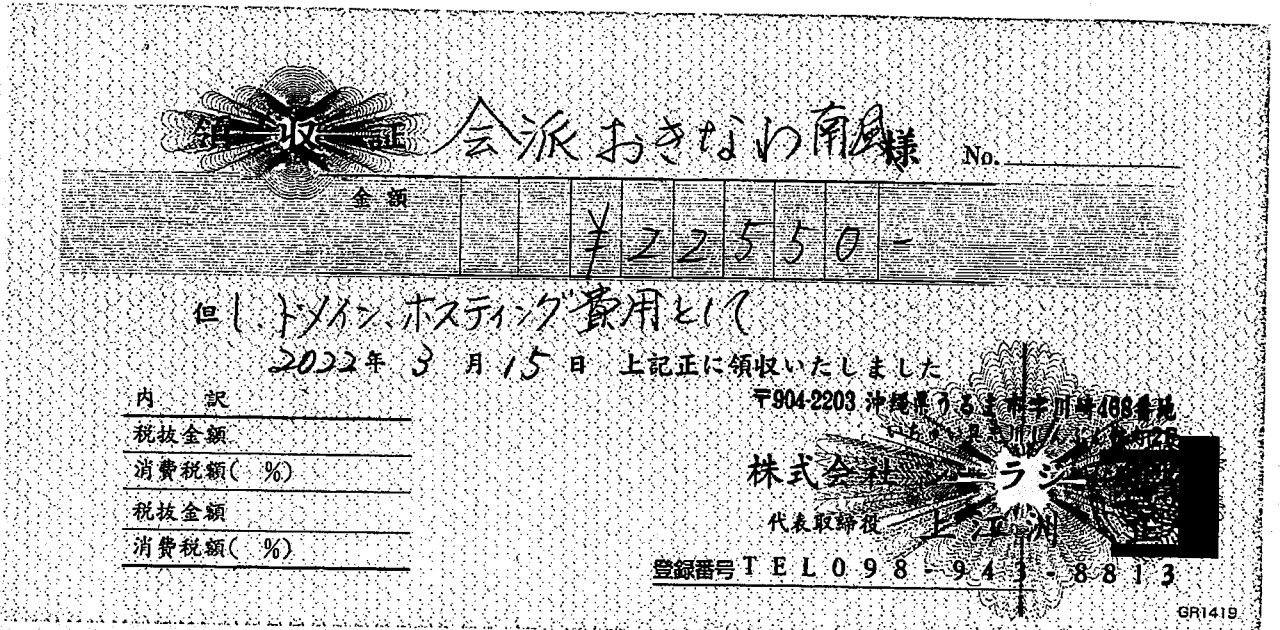 領収証 会派おきなわ南風様 No.
金額 ¥22550-
但し、ドメイン、ホスティング費用として
2022年 3月 15日 上記正に領収いたしました
内 訳
税抜金額
消費税額( %)
税抜金額
消費税額( %)
〒904-2203 沖縄県うるま市字川崎468番地
株式会社 ラジ
代表取締役 上江洲
登録番号 TEL098-943-8813
GR1419